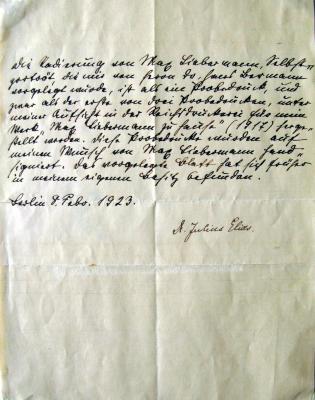 Die Radierung von Max Liebermann, Selbst-
portrait die mir von Herrn Dr. Jacob Bermann
vorgelegt wurde, ist als ein Probedruck, und
zwar als der erste von drei Probedrucken, unter
meiner Aufsicht in der Reichsdruckerei für mein
Werk, Max Liebermann zu Hause" (1917) herge-
stellt worden. Diese Probedrucke wurden auf
meinen Wunsch von Max Liebermann hand-
signiert. Das vorgelegte Blatt hat sich früher
in meinem eigenen Besitz befunden.
Berlin 8 Febr. 1923.
Dr. Julius Elias.